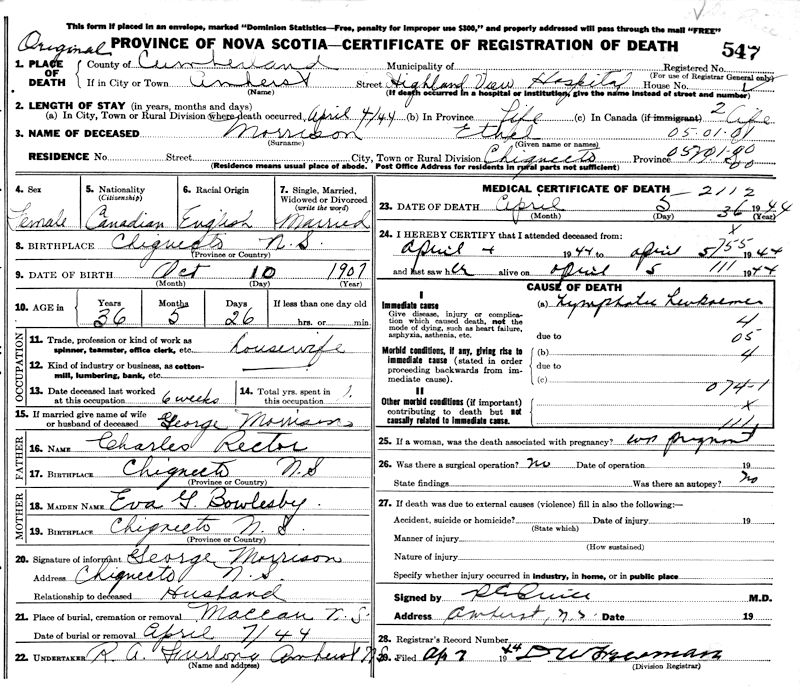 This form if placed in an envelope, marked "Dominion Statistics—Free, penalty for improper use $300," and properly addressed will pass through the mail "FREE"
Original
PROVINCE OF NOVA SCOTIA—CERTIFICATE OF REGISTRATION OF DEATH 547
1. PLACE OF DEATH County of Cumberland Municipality of Registered No.
(For use of Registrar General only)
If in City or Town Amherst Street Highland View Hospital House No.
(Name) (If death occurred in a hospital or institution, give the name instead of street and number)
2. LENGTH OF STAY (in years, months and days) 2
(a) In City, Town or Rural Division where death occurred, April 4/44 (b) In Province Life (c) In Canada (if immigrant) Life
3. NAME OF DECEASED Morrison Ethel 05.01.01
(Surname) (Given name or names)
RESIDENCE No. Street City, Town or Rural Division Chignecto Province
(Residence means usual place of abode. Post Office Address for residents in rural parts not sufficient)
4. Sex Female
5. Nationality (Citizenship) Canadian
6. Racial Origin English
7. Single, Married, Widowed or Divorced (write the word) Married
8. BIRTHPLACE Chignecto N.S.
(Province or Country)
9. DATE OF BIRTH Oct 10 1907
(Month) (Day) (Year)
10. AGE in Years Months Days If less than one day old
36 5 26 hrs. or min.
OCCUPATION
11. Trade, profession or kind of work as spinner, teamster, office clerk, etc. housewife
12. Kind of industry or business, as cotton-mill, lumbering, bank, etc.
13. Date deceased last worked at this occupation 6 weeks
14. Total yrs. spent in this occupation
15. If married give name of wife or husband of deceased George Morrison
FATHER
16. Name Charles Rector
17. Birthplace Chignecto N.S
(Province or Country)
MOTHER
18. Maiden Name Eva G Bowlesby
19. Birthplace Chignecto N.S.
(Province or Country)
20. Signature of informant George Morrison
Address Chignecto N.S.
Relationship to deceased Husband
21. Place of burial, cremation or removal Maccan N.S.
Date of burial or removal April 7/44
22. Undertaker R. A. Furlong Amherst N.S.
(Name and address)
MEDICAL CERTIFICATE OF DEATH 2112
23. DATE OF DEATH April 5 1944
(Month) (Day) 36 (Year)
24. I HEREBY CERTIFY that I attended deceased from: x
April 4 1944 to April 5/55 1944
and last saw her alive on April 5 111 1944
CAUSE OF DEATH
I
Immediate cause (a) Lymphatic Leukaemia
Give disease, injury or complication which caused death, not the mode of dying, such as heart failure, asphyxia, asthenia, etc. 4
due to 05
Morbid conditions, if any, giving rise to immediate cause (stated in order proceeding backwards from immediate cause). (b) 4
due to
(c) 074-1
II
Other morbid conditions (if important) contributing to death but not causally related to immediate cause. x
111
25. If a woman, was the death associated with pregnancy? was pregnant
26. Was there a surgical operation? No Date of operation 19
State findings Was there an autopsy? No
27. If death was due to external causes (violence) fill in also the following:—
Accident, suicide or homicide? Date of injury 19
(State which)
Manner of injury
(How sustained)
Nature of injury
Specify whether injury occurred in industry, in home, or in public place
Signed by M.D.
Address Amherst, N.S. Date 19
28. Registrar's Record Number
29. Filed Ap 7 1944 D W Freeman
(Division Registrar)